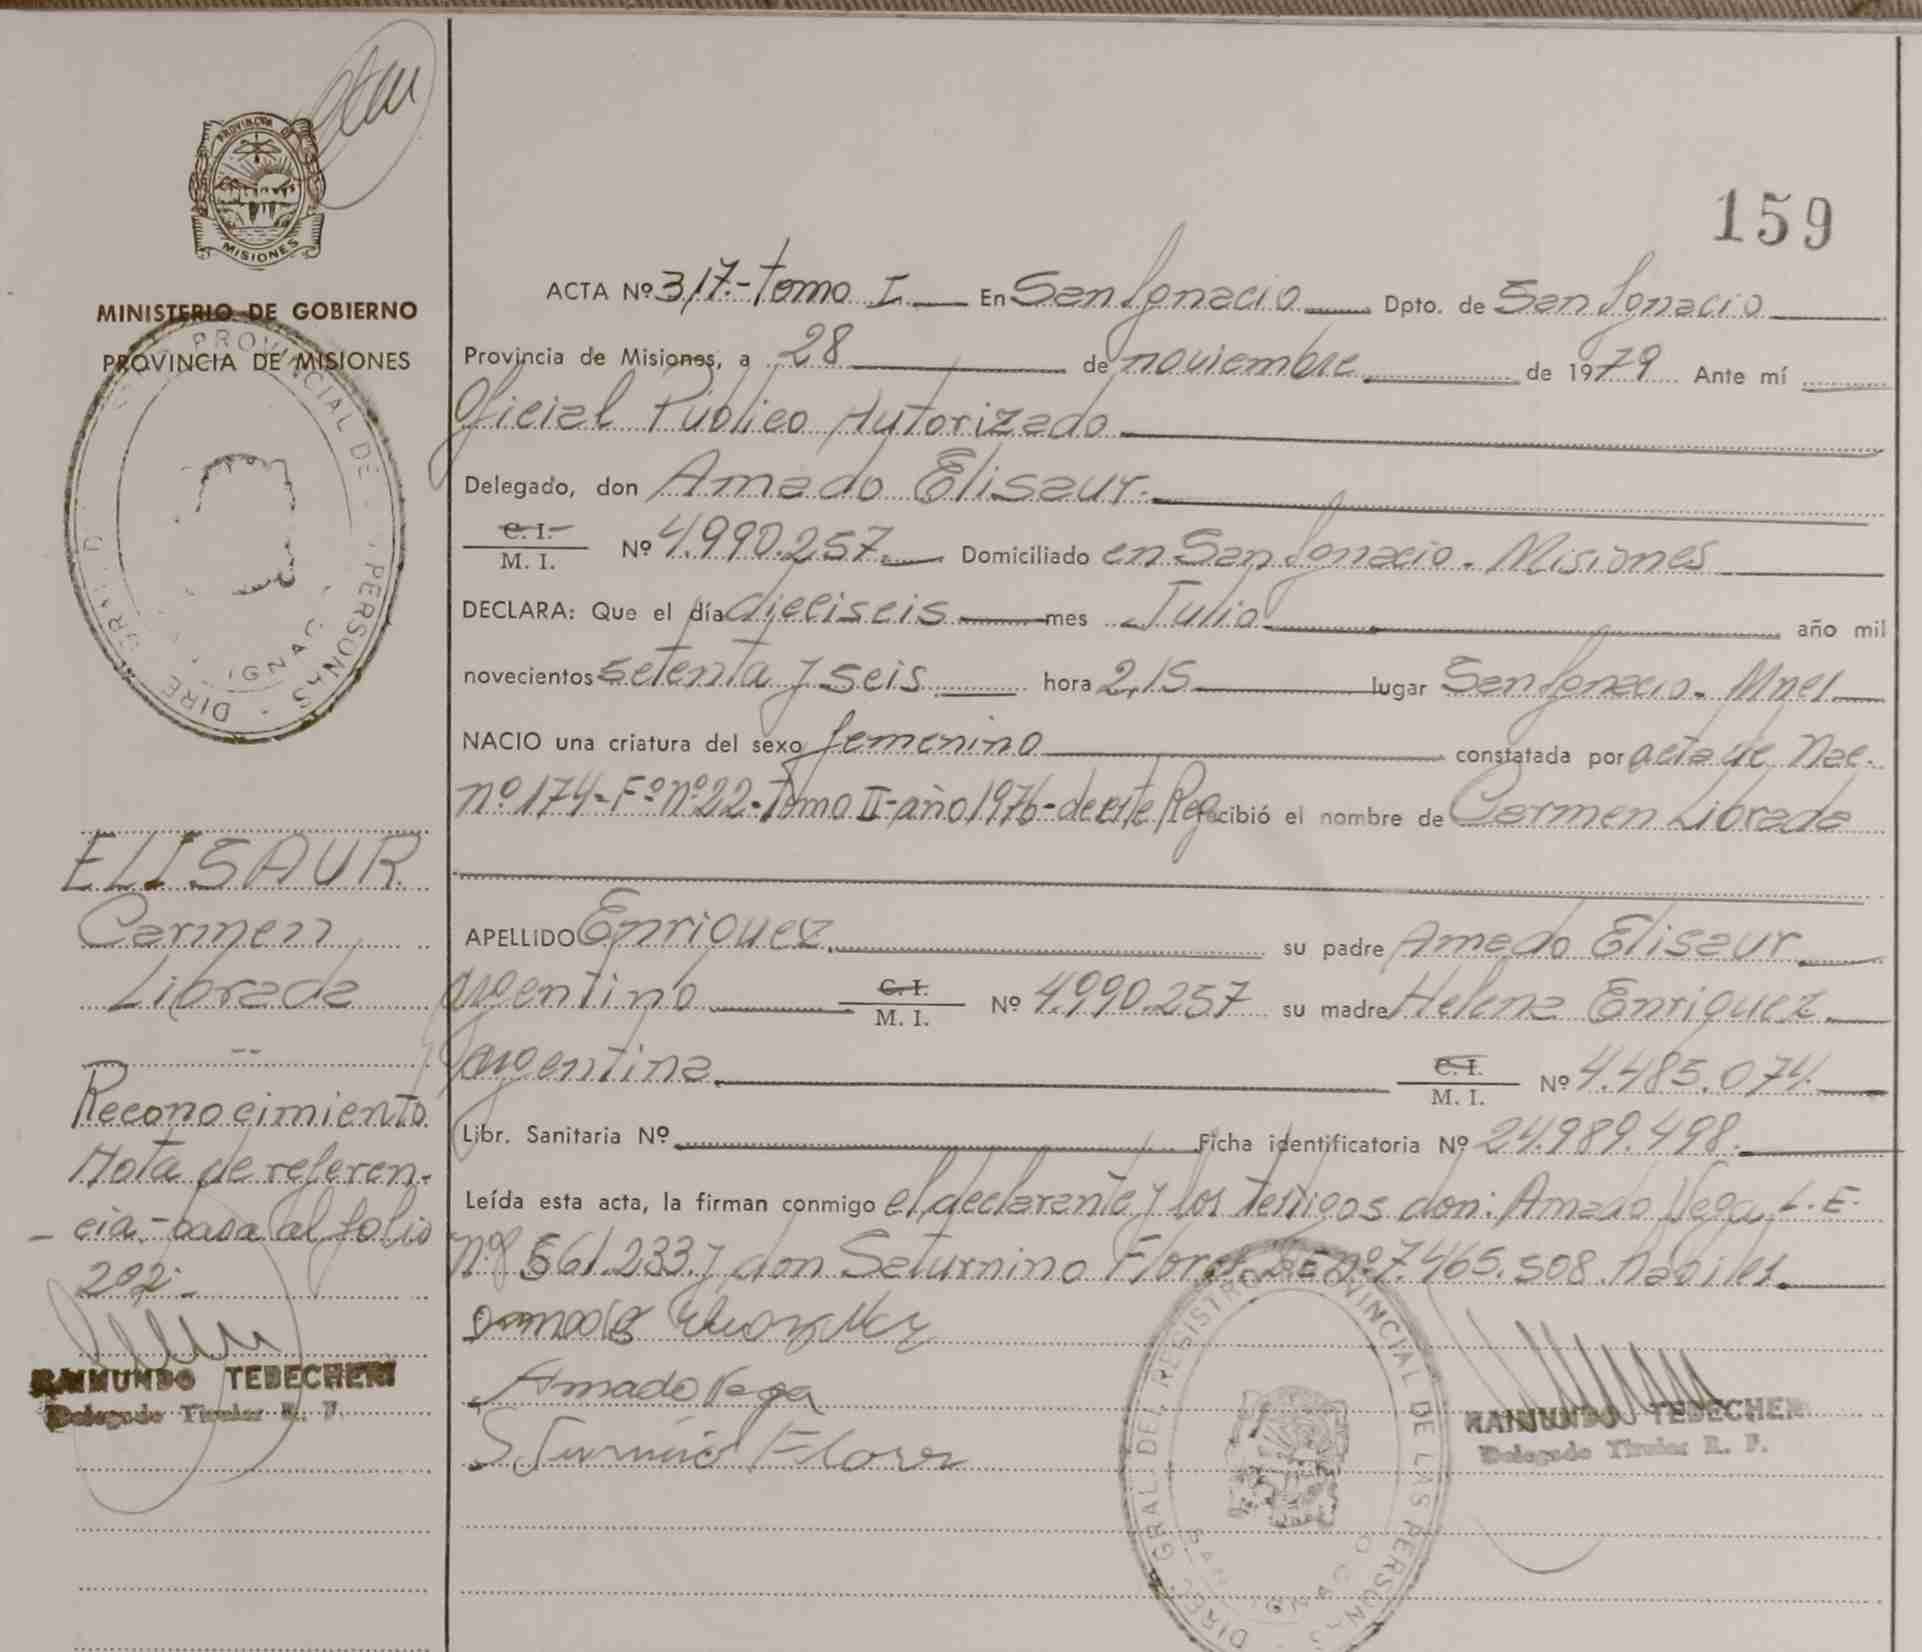 PROVINCIA D
MISIONES
MINISTERIO DE GOBIERNO
PROVINCIA DE MISIONES
PROVINCIAL DE PERSONAS - DIRE GRAL D
IGNAC
159
ACTA Nº 317.- tomo I En San Ignacio Dpto. de San Ignacio
Provincia de Misiones, a 28 de noviembre de 1979 Ante mí
Oficial Público Autorizado
Delegado, don Amado Elisaur.
C. I. M. I. Nº 4.990.257. Domiciliado en San Ignacio. Misiones
DECLARA: Que el día dieciseis mes Julio año mil
novecientos setenta y seis hora 2,15 lugar San Ignacio. Mnes.
NACIO una criatura del sexo femenino constatada por acta de Nac.
nº 174- Fº nº 22- tomo II- año 1976- de este Reg. recibió el nombre de Carmen Librada
APELLIDO Enriquez. su padre Amado Elisaur
argentino C. I. M. I. Nº 4.990.257 su madre Helena Enriquez.
argentina C. I. M. I. Nº 4.485.074.
Libr. Sanitaria Nº Ficha identificatoria Nº 24.989.498.
Leída esta acta, la firman conmigo el declarante y los testigos don: Amado Vega L. E.
nº 561.233 y don Saturnino Flores L E nº 7.465.508. habiles.
Amado Vega
Flores
RAIMUNDO TEDECHERI
Delegado Titular R. P.
DIREC. GRAL DEL REGISTRO PROVINCIAL DE LAS PERSONAS
SAN IGNACIO
ELISAUR
Carmen
Librada
Reconocimiento
Nota de referen-
cia.- pasa al folio
202.-
RAIMUNDO TEDECHERI
Delegado Titular R. P.